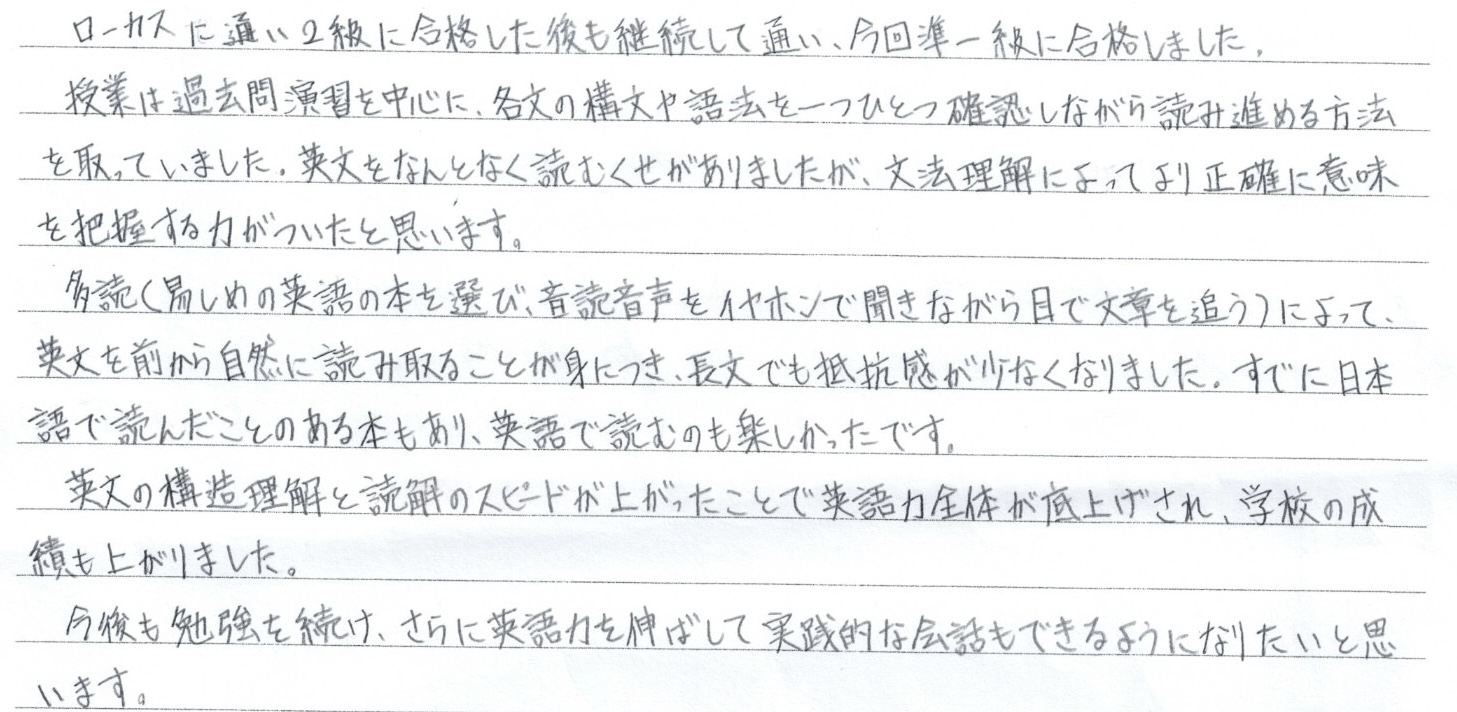 ローカスに通い2級に合格した後も継続して通い、今回準一級に合格しました。
授業は過去問演習を中心に、各文の構文や語法を一つひとつ確認しながら読み進める方法
を取っていました。英文をなんとなく読むくせがありましたが、文法理解によってより正確に意味
を把握する力がついたと思います。
多読(易しめの英語の本を選び、音読音声をイヤホンで聞きながら目で文章を追う)によって、
英文を前から自然に読み取ることが身につき、長文でも抵抗感が少なくなりました。すでに日本
語で読んだことのある本もあり、英語で読むのも楽しかったです。
英文の構造理解と読解のスピードが上がったことで英語力全体が底上げされ、学校の成
績も上がりました。
今後も勉強を続け、さらに英語力を伸ばして実践的な会話もできるようになりたいと思
います。